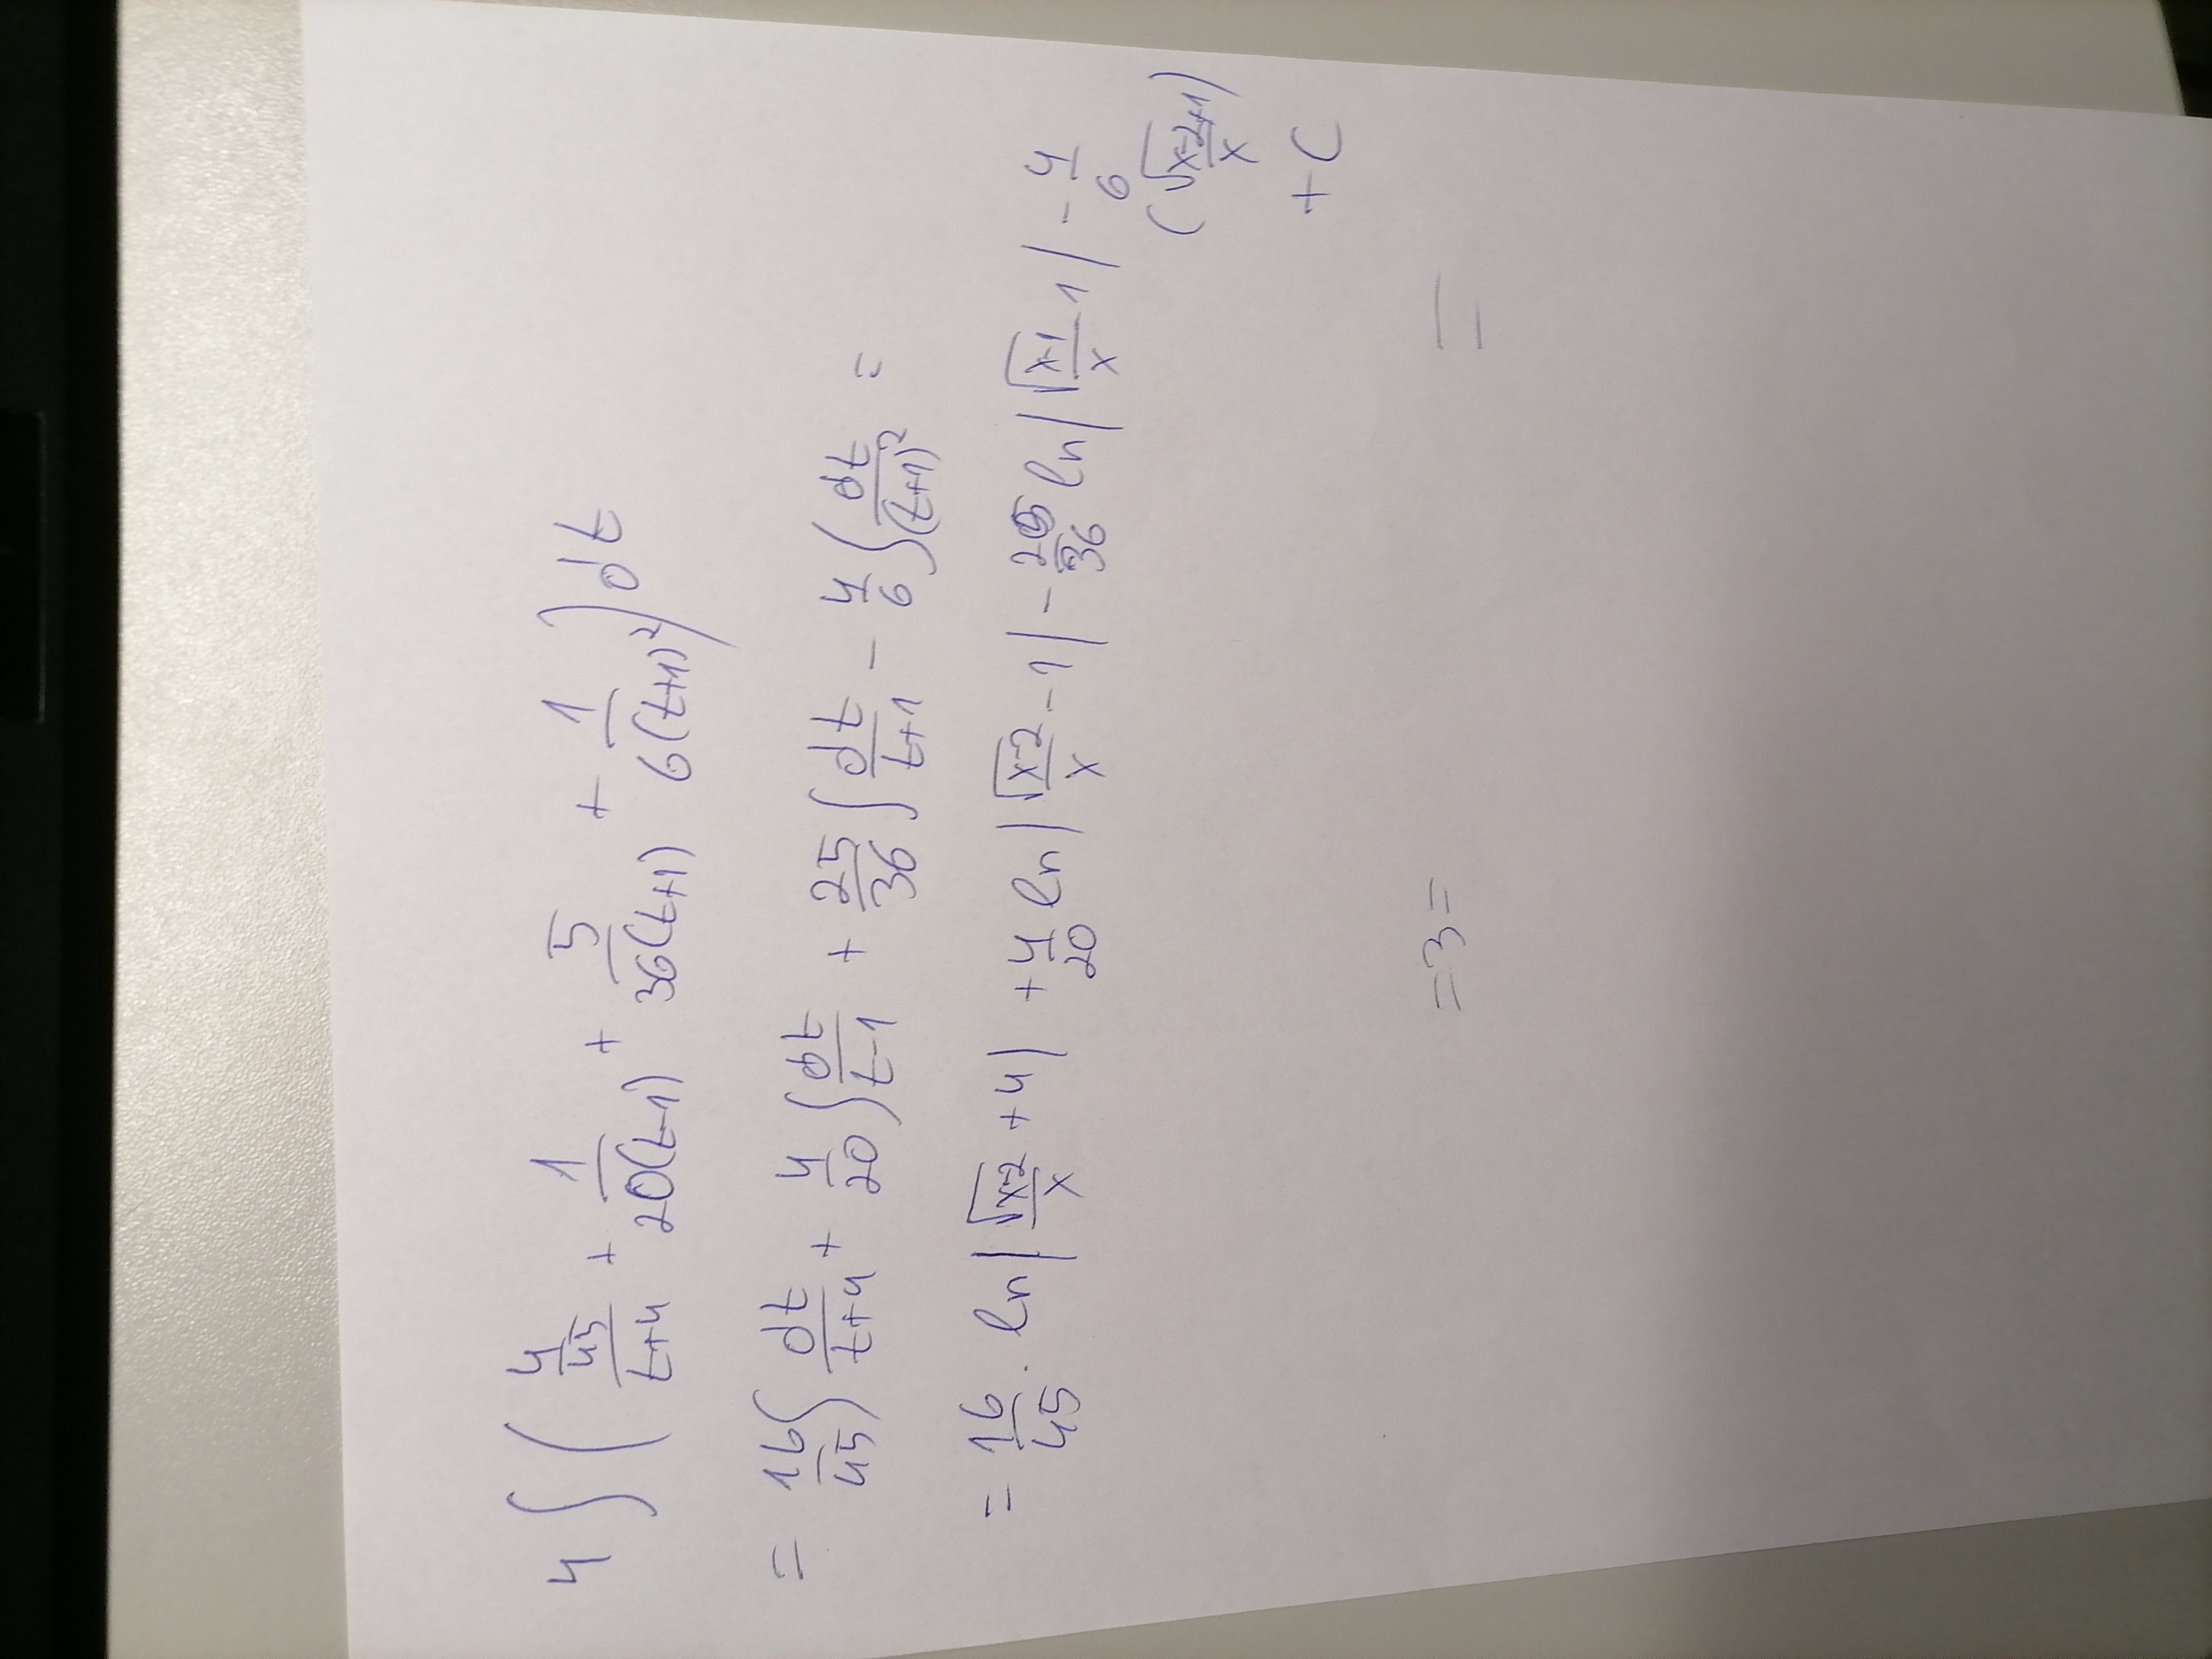 4 ∫ ( (4/45)/(t+4) + 1/(20(t-1)) + 5/(36(t+1)) + 1/(6(t+1)²) ) dt
= 16/45 ∫ dt/(t+4) + 4/20 ∫ dt/(t-1) + 25/36 ∫ dt/(t+1) - 4/6 ∫ dt/(t+1)² =
= 16/45 · ln| √(x-2)/x + 4 | + 4/20 ln| √(x-2)/x - 1 | - 205/36 ln| √(x-1)/x 1 | - 4/6
( √(x-2)/x +1)
+ C
=3= =